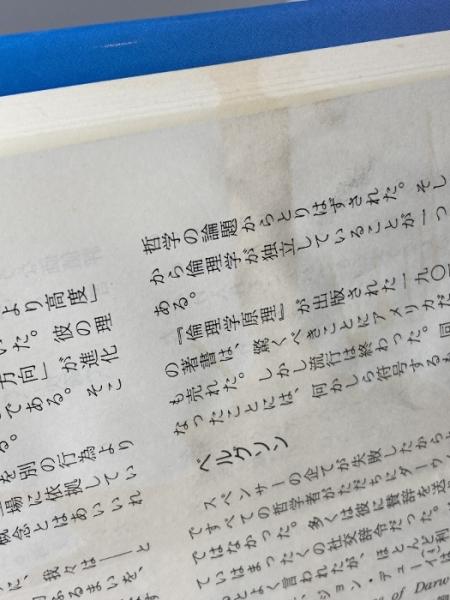 より高度」
いた。彼の理
方向」が進化
である。そこ
る。
を別の行為より
立場に依拠してい
概念とはあいいれ
に、我々は――と
るまいを、
哲学の論題からとりはずされた。そし
から倫理学が独立していることが一つ
ある。
『倫理学原理』が出版された一九〇
の著書は、驚くべきことにアメリカだ
も売れた。しかし流行は終わった。同
なったことには、何かしら符号するも
ベルグソン
スペンサーの企てが失敗したからと
ですべての哲学者がただちにダーウィ
ではなかった。多くは彼に賛辞を送
ていはまったくの社交辞令だった。
とよく言われたが、ほとんど利
ジョン・デューイは
of Darw